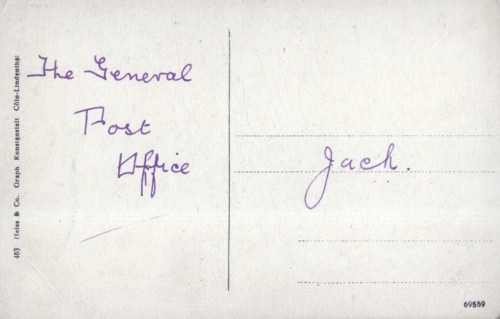 The General
Post
Office
Jack.
463 Heiss & Co. Graph Kunstanstalt Cöln-Lindenthal
69559